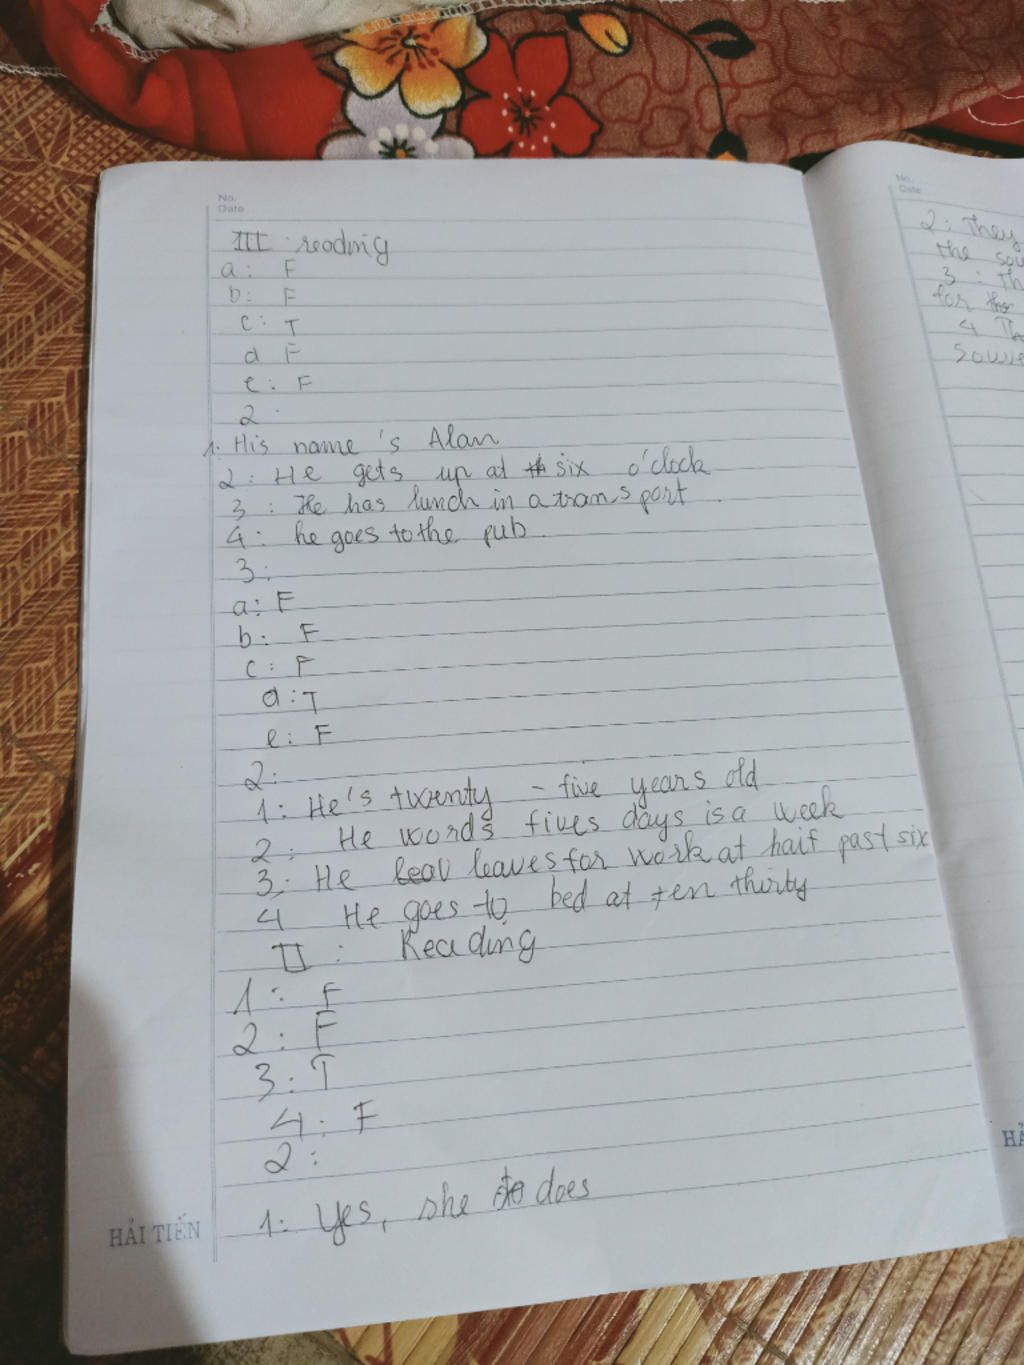 No.
Date
III : reading
a : F
b : F
c : T
d F
e : F
2 :
1. His name 's Alan
2 : He gets up at six o'clock
3 : He has lunch in a transport .
4 : he goes to the pub .
3 :
a : F
b : F
c : F
d : T
e : F
2 :
1 : He's twenty - five years old
2 : He words fives days is a week
3 : He leaves for work at haif past six
4 He goes to bed at ten thirty
II : Reading
1 : F
2 : F
3 : T
4 : F
2 :
1 : Yes, she does
HẢI TIẾN
No.
Date
2 : They
the sou
3 : Th
for
4 Th
Souve
HẢ